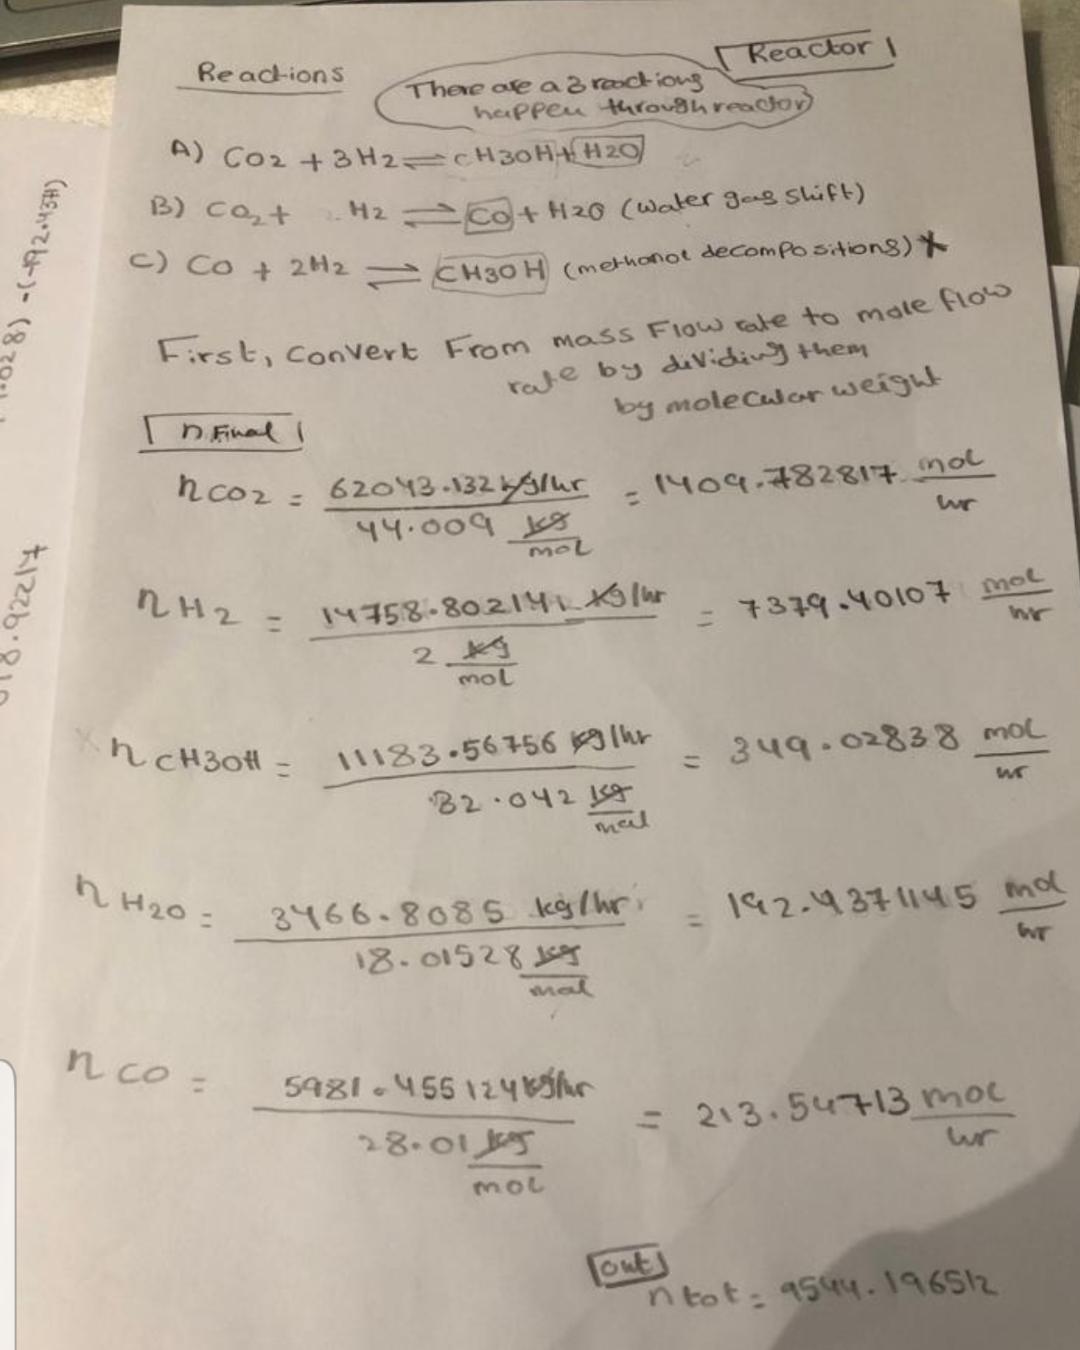 Reactor
Reactions
There are a 3 reactions
happen through reactor
A) CO2 + 3H2 ⇌ CH3OH + H2O
B) CO2 + H2 ⇌ CO + H2O (water gas shift)
C) CO + 2H2 ⇌ CH3OH (methanol decompositions) X
First, convert From mass Flow rate to mole flow
rate by dividing them
by molecular weight
n Final
nCO2 = 62043.132 kg/hr / 44.009 kg/mol = 1409.782817 mol/hr
nH2 = 14758.802141 kg/hr / 2 kg/mol = 7379.40107 mol/hr
nCH3OH = 11183.56756 kg/hr / 32.042 kg/mol = 349.02838 mol/hr
nH2O = 3466.8085 kg/hr / 18.01528 kg/mol = 192.4371145 mol/hr
nCO = 5981.455124 kg/hr / 28.01 kg/mol = 213.54713 mol/hr
out
n tot = 9544.196512
.028) - (-192.4371)
18.92217